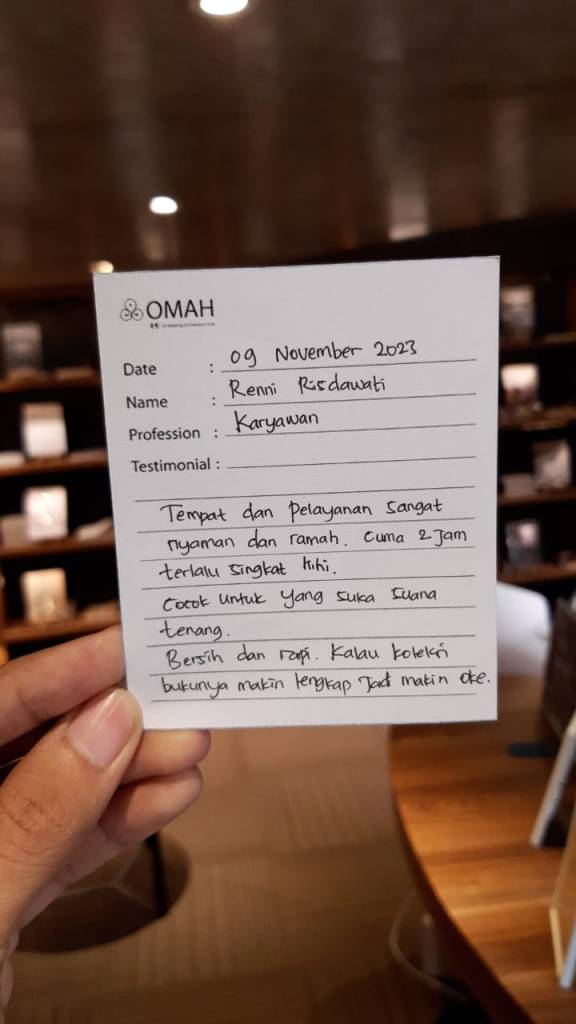 OMAH
Date : 09 November 2023
Name : Renni Risdawati
Profession : Karyawan
Testimonial :
Tempat dan pelayanan sangat
nyaman dan ramah. Cuma 2 Jam
terlalu singkat hihi.
Cocok untuk yang suka suana
tenang.
Bersih dan rapi. Kalau koleksi
bukunya makin lengkap Jadi makin oke.